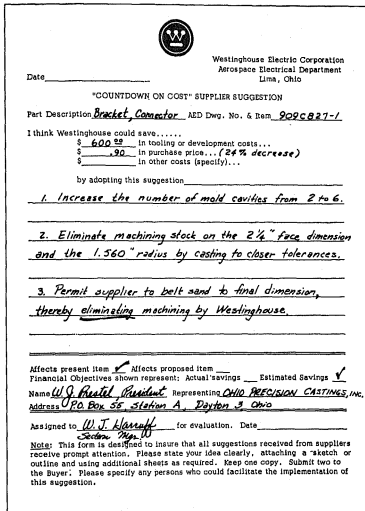 W
Westinghouse Electric Corporation
Aerospace Electrical Department
Lima, Ohio
Date
"COUNTDOWN ON COST" SUPPLIER SUGGESTION
Part Description Bracket, Connector AED Dwg. No. & Item 909C827-1
I think Westinghouse could save......
$ 600 00 in tooling or development costs...
$ .90 in purchase price... (24% decrease)
$ in other costs (specify)...
by adopting this suggestion
1. Increase the number of mold cavities from 2 to 6.
2. Eliminate machining stock on the 2 1/4" face dimension
and the 1.560" radius by casting to closer tolerances.
3. Permit supplier to belt sand to final dimension,
thereby eliminating machining by Westinghouse.
Affects present item ✓ Affects proposed item
Financial Objectives shown represent: Actual savings Estimated Savings ✓
Name W.J. Prestel, President Representing OHIO PRECISION CASTINGS, INC.
Address P.O. Box 55, Station A, Dayton 3 Ohio
Assigned to W. J. Harruff for evaluation. Date
Section Mgr.
Note: This form is designed to insure that all suggestions received from suppliers
receive prompt attention. Please state your idea clearly, attaching a sketch or
outline and using additional sheets as required. Keep one copy. Submit two to
the Buyer. Please specify any persons who could facilitate the implementation of
this suggestion.